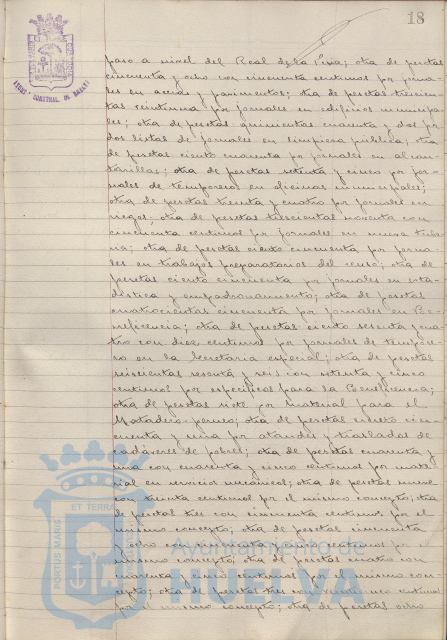 18
paso a nivel del Real de la Feria; otra de pesetas
cincuenta y ocho con cincuenta centimos por jorna-
les en aceras y pavimentos; otra de pesetas trescien-
tas treintiuna por jornales en edificios municipa-
les; otra de pesetas quinientas cuarenta y dos por
dos listas de jornales en limpieza pública; otra
de pesetas ciento cuarenta por jornales en alcan-
tarillas; otra de pesetas setenta y cinco por jor-
nales de temporeros en oficinas municipales;
otra de pesetas treinta y cuatro por jornales en
riegos; otra de pesetas trescientas noventa con
cincuenta centimos por jornales en nueva tube-
ria; otra de pesetas ciento cincuenta por jorna-
les en trabajos preparatorios del censo; otra de
pesetas ciento cincuenta por jornales en esta-
distica y empadronamiento; otra de pesetas
cuatrocientas cincuenta por jornales en Be-
neficencia; otra de pesetas ciento sesenta y cua-
tro con diez centimos por jornales de tempore-
ro en la Secretaria especial; otra de pesetas
seiscientas sesenta y seis con setenta y cinco
centimos por especificos para la Beneficencia;
otra de pesetas siete por material para el
Matadero; otra de pesetas ciento cin-
cuenta y una por ataudes y traslados de
cadáveres de pobres; otra de pesetas cuarenta y
una con cuarenta y cinco centimos por mate-
rial en servicios mecánicos; otra de pesetas nueve
con treinta centimos por el mismo concepto; otra
de pesetas tres con cincuenta centimos por el
mismo concepto; otra de pesetas cincuenta
y ocho con cincuenta y cinco centimos por
mismo concepto; otra de pesetas cuatro con
cuarenta y cinco centimos por el mismo con-
cepto; otra de pesetas tres con veinticinco centimos
por el mismo concepto; otra de pesetas ocho
PORTUS MARIS
ET TERRAE
Ayuntamiento de
HUELVA